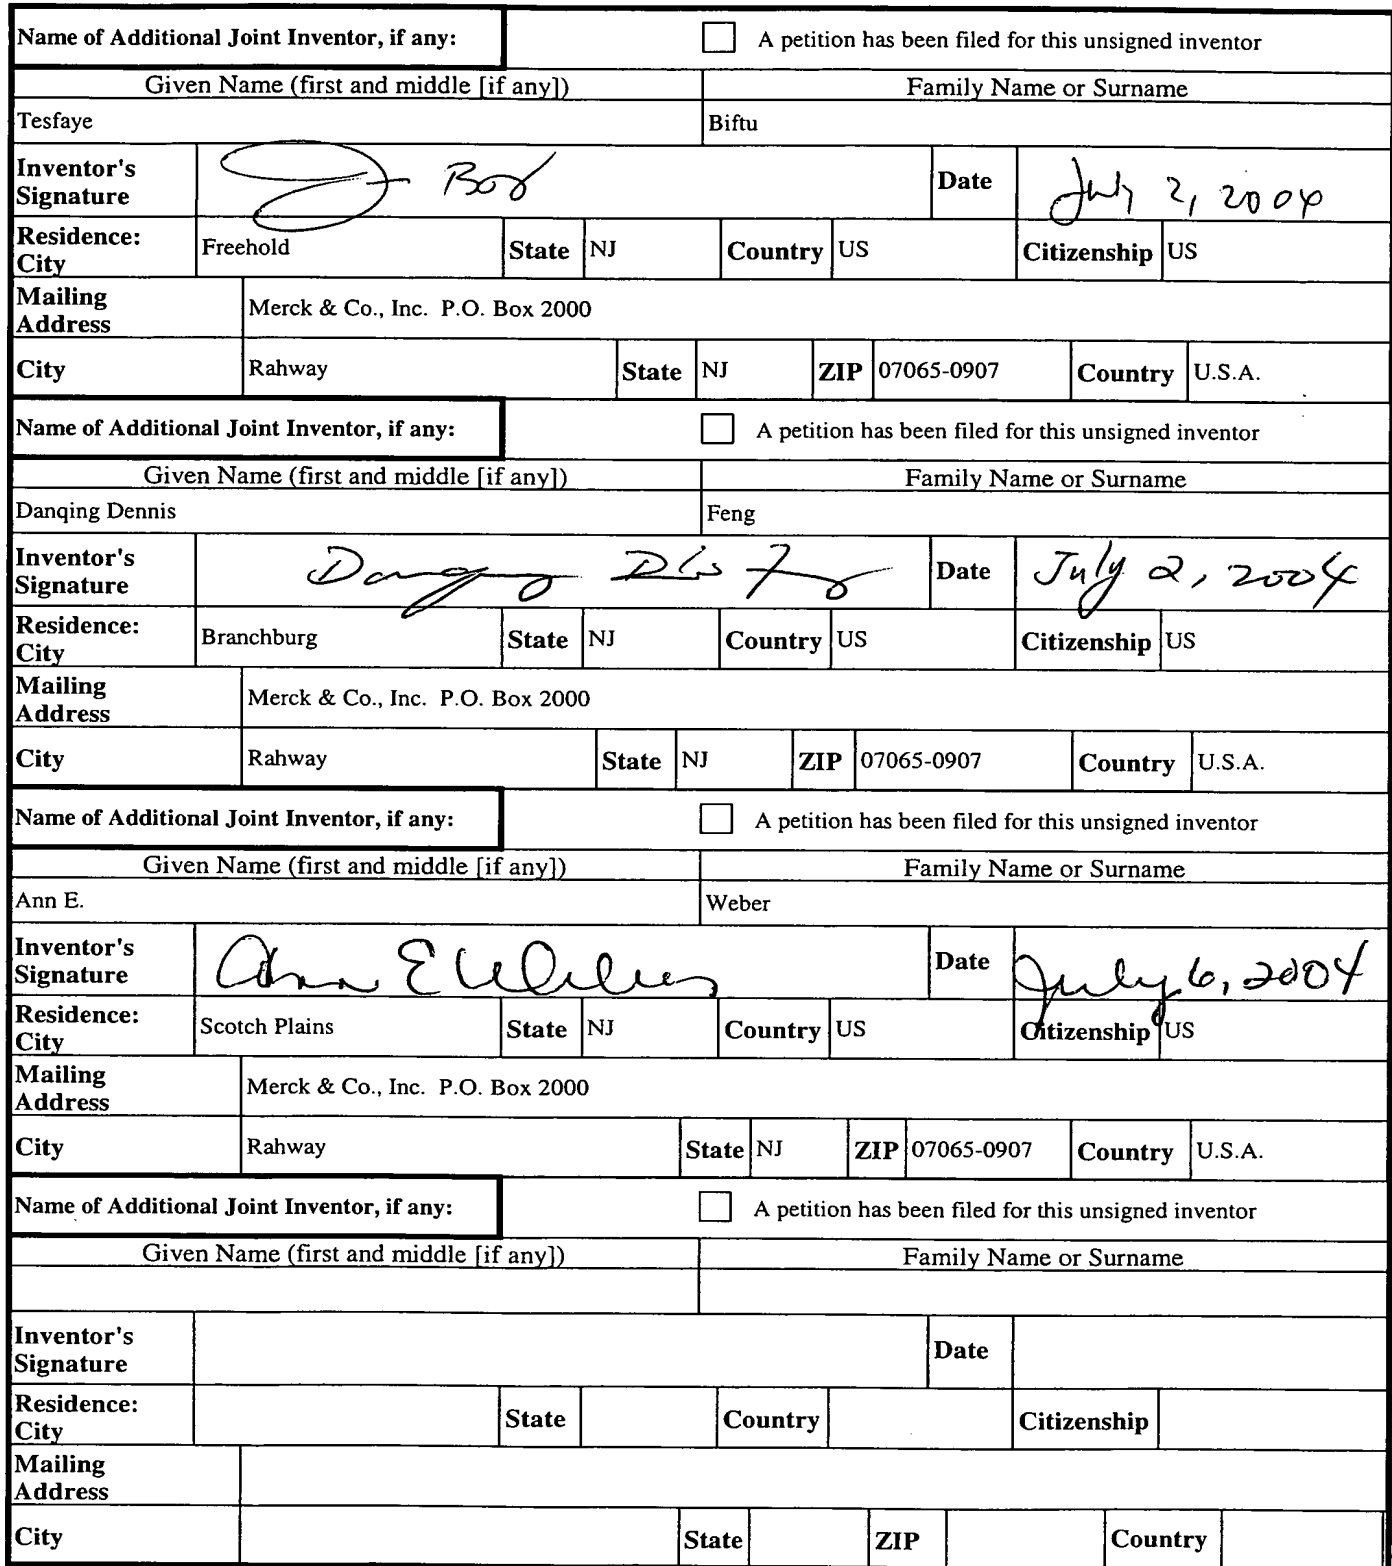 Name of Additional Joint Inventor, if any: A petition has been filed for this unsigned inventor
Given Name (first and middle [if any]) Family Name or Surname
Tesfaye Biftu
Inventor's
Signature Date July 2, 2004
Residence:
City Freehold State NJ Country US Citizenship US
Mailing
Address Merck & Co., Inc. P.O. Box 2000
City Rahway State NJ ZIP 07065-0907 Country U.S.A.
Name of Additional Joint Inventor, if any: A petition has been filed for this unsigned inventor
Given Name (first and middle [if any]) Family Name or Surname
Danqing Dennis Feng
Inventor's
Signature Date July 2, 2004
Residence:
City Branchburg State NJ Country US Citizenship US
Mailing
Address Merck & Co., Inc. P.O. Box 2000
City Rahway State NJ ZIP 07065-0907 Country U.S.A.
Name of Additional Joint Inventor, if any: A petition has been filed for this unsigned inventor
Given Name (first and middle [if any]) Family Name or Surname
Ann E. Weber
Inventor's
Signature Ann E Weber Date July 6, 2004
Residence:
City Scotch Plains State NJ Country US Citizenship US
Mailing
Address Merck & Co., Inc. P.O. Box 2000
City Rahway State NJ ZIP 07065-0907 Country U.S.A.
Name of Additional Joint Inventor, if any: A petition has been filed for this unsigned inventor
Given Name (first and middle [if any]) Family Name or Surname
Inventor's
Signature Date
Residence:
City State Country Citizenship
Mailing
Address
City State ZIP Country